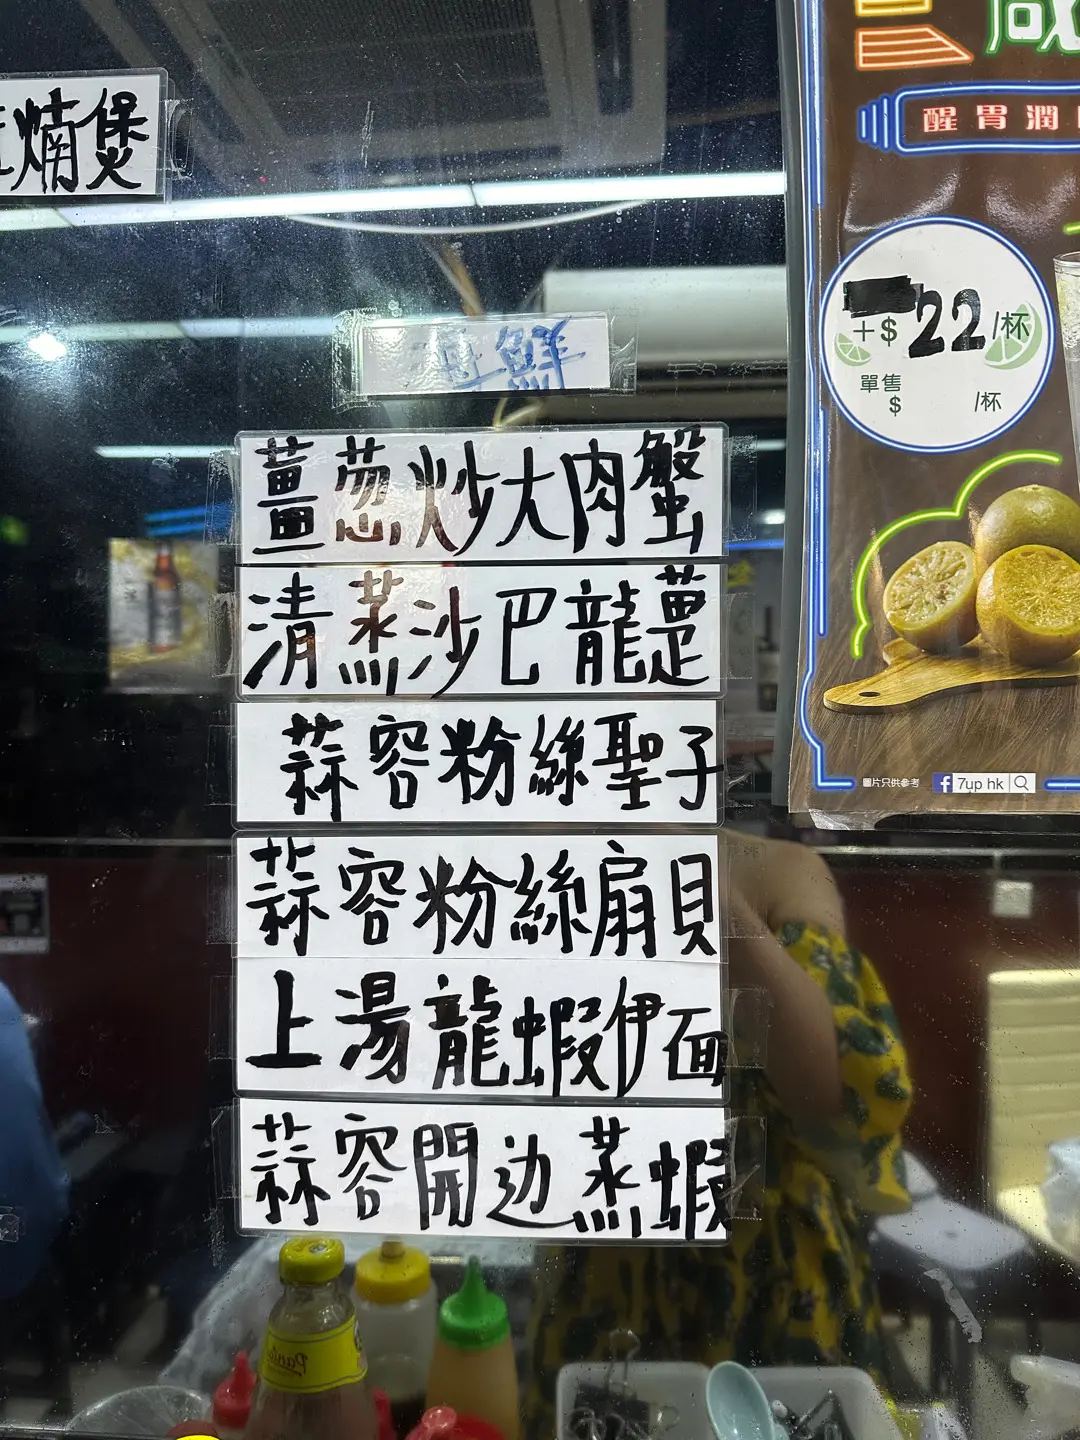 燶煲
海鮮
薑葱炒大肉蟹
清蒸沙巴龍躉
蒜容粉絲聖子
蒜容粉絲扇貝
上湯龍蝦伊面
蒜容開边蒸蝦
醒胃潤
+$22/杯
單售
$ /杯
圖片只供參考
7up hk